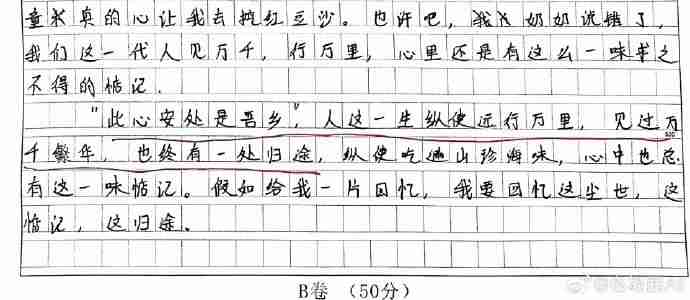 童米真的心让我去挑红豆沙。也许吧，我又奶奶说错了，
我们这一代人见万千，行万里，心里还是有这么一味求之
不得的惦记。
"此心安处是吾乡"，人这一生纵使远行万里，见过万
千繁华，也终有一处归途，纵使吃遍山珍海味，心中也总
有这一味惦记。假如给我一片回忆，我要回忆这尘世，这
惦记，这归途。
B卷（50分）